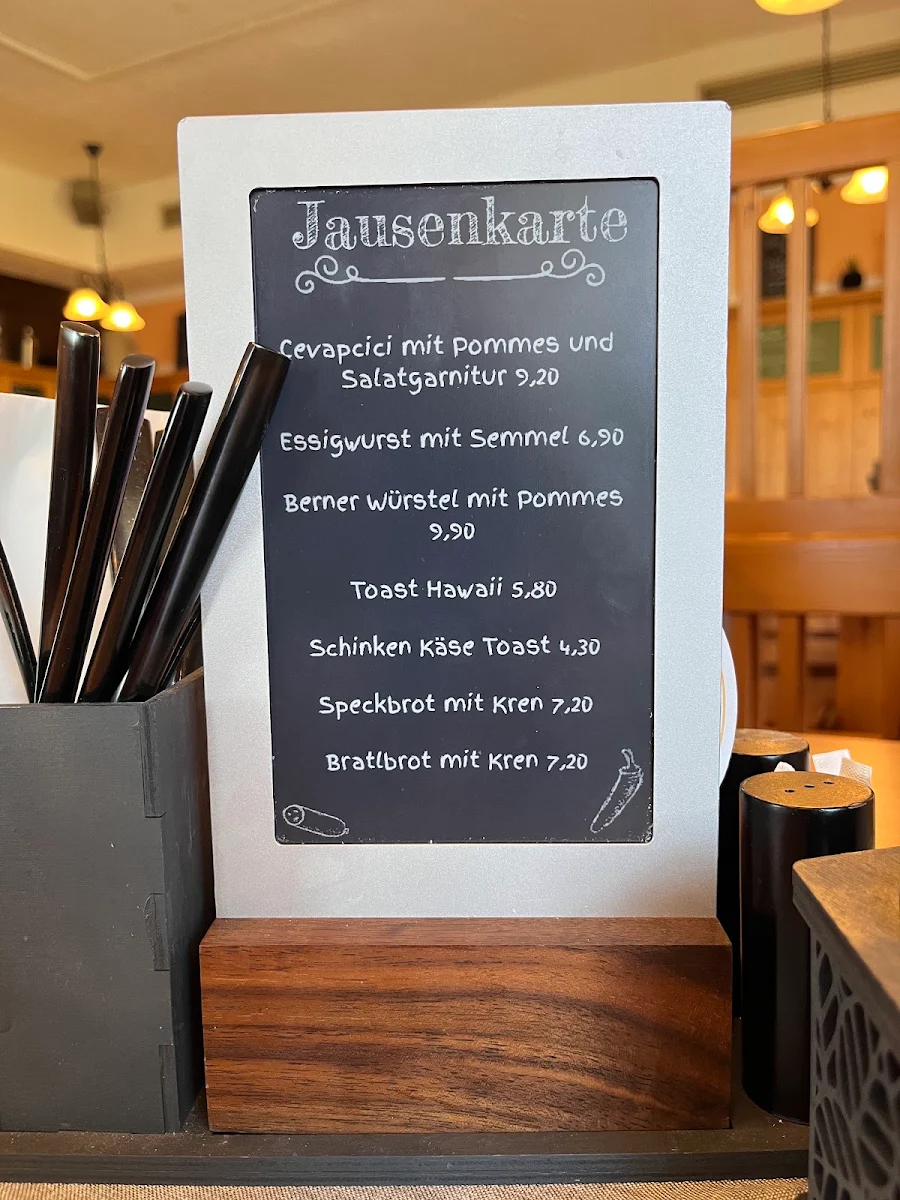 Jausenkarte
Cevapcici mit Pommes und
Salatgarnitur 9,20
Essigwurst mit Semmel 6,90
Berner Würstel mit Pommes
9,90
Toast Hawaii 5,80
Schinken Käse Toast 4,30
Speckbrot mit Kren 7,20
Bratlbrot mit Kren 7,20